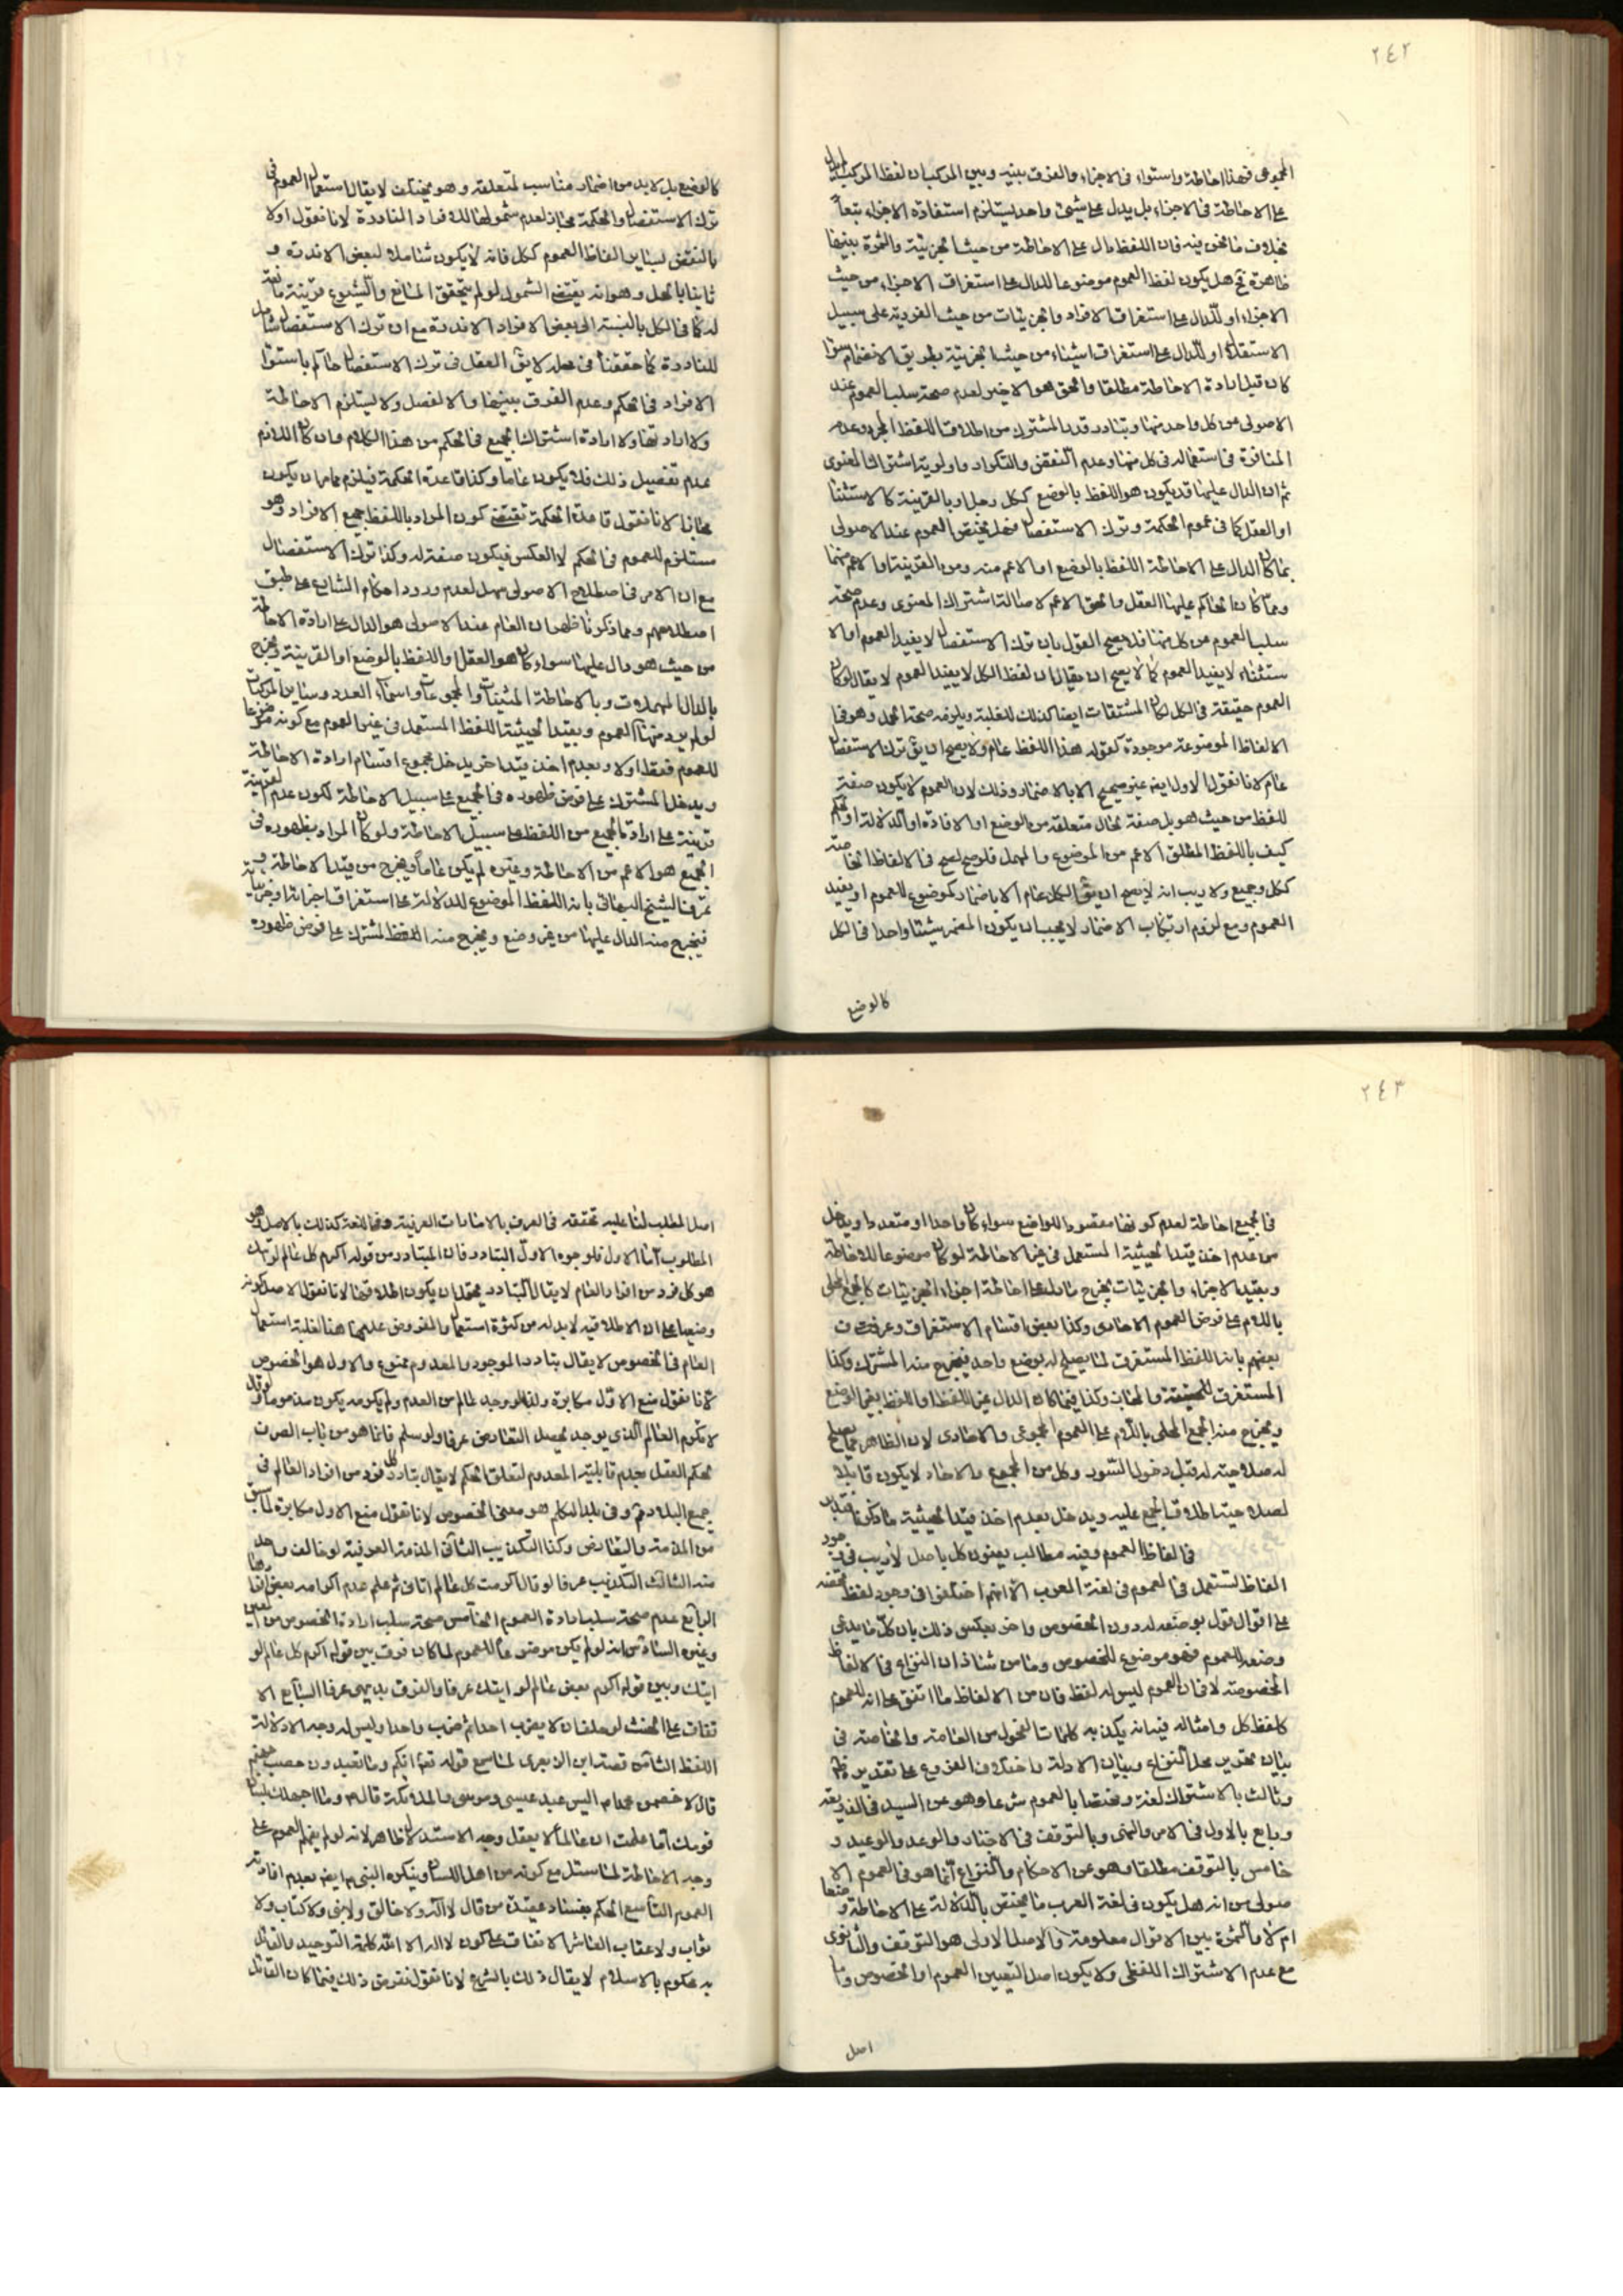 ٢٤٢
المجموعى فهذا احاطة واستواء فى الاجزاء والفرق بينه وبين المركب ان لفظ المركب لا يدل
على الاحاطة فى الاجزاء بل يدل على شيئ واحد يستلزم استفادة الاجزاء تبعاً
بخلاف ما نحن فيه فان اللفظ دال على الاحاطة من حيث الجزئية والثمرة بينهما
ظاهرة ثم هل يكون لفظ العموم موضوعا للدال على استغراق الاجزاء من حيث
الاجزاء او للدال على استغراق الافراد والجزئيات من حيث الفردية على سبيل
الاستقلال او للدال على استغراق اشياء من حيث الجزئية بطريق الانضمام سواء
كان قبل ارادة الاحاطة مطلقا والحق هو الاخير لعدم صحة سلب العموم عند
الاصولى عن كل واحد منها وتبادر قدر المشترك من اطلاق اللفظ المجرد وعدم
المنافرة فى استعماله فى كل منها وعدم التنقض والتكرار واولوية اشتراك المعنوى
ثم ان الدال عليها قد يكون هو اللفظ بالوضع ككل رجل او بالقرينة كالاستثناء
او العقل كما فى عموم الحكمة وترك الاستفصال فهل يختص العموم عند الاصولى
بما كان الدال على الاحاطة اللفظ بالوضع او الاعم منه ومن القرينة او الاعم منهما
ومما كان الحاكم عليها العقل والحق الاعم لاصالة اشتراك المعنوى وعدم صحة
سلب العموم من كل منها فلا يصح القول بان ترك الاستفصال لا يفيد العموم او الا
ستثناء لا يفيد العموم كما لا يصح ان يقال ان لفظ الكل لا يفيد العموم لا يقال لو كان
العموم حقيقة فى الكل لكان المشتقات ايضا كذلك للغلبة ويلزمه صحة الحمل وهو فى
الالفاظ الموضوعة موجودة كقوله هذا اللفظ عام ولا يصح ان يق ترك الاستفصال
عام لانا نقول الاول ايضا غير صحيح الا بالاضمار وذلك لان العموم لا يكون صفة
للفظ من حيث هو بل صفة لحال متعلقه من الوضع او الافادة او الدلالة او الحكم
كيف باللفظ المطلق الاعم من الموضوع والمهمل فلو صح لصح فى الالفاظ الخاصة
ككل وجميع ولا ريب انه لا يصح ان يق الكل عام الا باضمار كموضوع للعموم او يفيد
العموم ومع لزوم ارتكاب الاضمار لا يجب ان يكون المضمر شيئا واحدا فى الكل
كالوضع
كالوضع بل لا بد من اضمار مناسب لمتعلقه وهو مختلف لا يقال استعمال العموم فى
ترك الاستفصال والحكمة مجاز لعدم شمولها للافراد النادرة لانا نقول اولا
بالنقض لساير الفاظ العموم ككل فانه لا يكون شاملا لبعض الاندرة و
ثانيا بالحل وهو انه يقتضى الشمول لو لم يتحقق المانع والشيوع قرينة مانعة
له كما فى الكل بالنسبة الى بعض الافراد الاندرة مع ان ترك الاستفصال شامل
للنادرة كما حققنا فى محله لا يق العقل فى ترك الاستفصال حاكم باستواء
الافراد فى الحكم وعدم الفرق بينها والا لفصل ولا يستلزم الاحاطة
ولا ارادتها ولا ارادة اشتراك الجميع فى الحكم من هذا الكلام وان كان اللازم
عدم تفصيل ذلك فلا يكون عاما وكذا قاعدة الحكمة فيلزم مامر ان يكون
مجازا لانا نقول قاعدة الحكمة تقتضى كون المراد باللفظ جميع الافراد وهو
مستلزم للعموم فى الحكم لا العكس فيكون صفة له وكذا ترك الاستفصال
مع ان الامر فى اصطلاح الاصولى سهل لعدم ورود احكام الشارع على طبق
اصطلاحهم ومما ذكرنا ظهر ان العام عند الاصولى هو الدال على ارادة الاحاطة
من حيث هو دال عليها سواء كان هو العقل او اللفظ بالوضع او القرينة ويخرج
بالدال المهملات وبالاحاطة المثنيات والمجموعات واسماء العدد وساير المركبات
لو لم يرد منها العموم وبقيد الحيثية اللفظ المستعمل فى غير العموم مع كونه موضوعا
للعموم فقط اولا وبعدم اخذ قيد اخر يدخل مجموع اقسام ارادة الاحاطة
ويدخل المشترك على فرض ظهوره فى الجميع على سبيل الاحاطة لكون عدم القرينة
قرينة على ارادة الجميع من اللفظ على سبيل الاحاطة ولو كان المراد بظهوره فى
الجميع هو الاعم من الاحاطة وغيره لم يكن عاماً ويخرج من قيد الاحاطة و
عرفه الشيخ البهائى بانه اللفظ الموضوع للدلالة على استغراق اجزائه او جزئياته
فيخرج منه الدال عليها من غير وضع ويخرج منه اللفظ المشترك على فرض ظهوره
٢٤٣
فى الجميع احاطة لعدم كونها مقصود الواضع سواء كان واحدا او متعددا ويدخل
من عدم اخذ قيد الحيثية المستعمل فى غير الاحاطة لو كان موضوعا للاحاطة
وبقيد الاجزاء والجزئيات يخرج ما دل على احاطة اجزاء الجزئيات كالجمع المحلى
باللام على فرض العموم الاحادى وكذا بعض اقسام الاستغراق وعرفه
بعضهم بانه اللفظ المستغرق لما يصلح له بوضع واحد فيخرج منه المشترك وكذا
المستغرق للحقيقة والمجاز وكذا فيما كان الدال غير اللفظ او اللفظ بغير الوضع
ويخرج منه الجمع المحلى باللام على العموم المجموعى والاحادى لان الظاهر مما يصلح
له صلاحيته له قبل دخول السور وكل من المجموع والاحاد لا يكون قابلا
لصلاحية اطلاق الجمع عليه ويدخل بعدم اخذ قيد الحيثية ما ذكرنا
فى الفاظ العموم وفيه مطالب يعنون كل باصل لا ريب فى وجود
الفاظ تستعمل فى العموم فى لغة العرب الا انهم اختلفوا فى وجود لفظ
على اقوال قول بوضعه له دون الخصوص واخر بعكس ذلك بان كل ما يدعى
وضعه للعموم فهو موضوع للخصوص ومن شاذ ان النزاع فى الالفاظ
المخصوصة لا فى ان العموم ليس له لفظ فان من الالفاظ ما اتفق على انه للعموم
كلفظ كل وامثاله فيه انه يكذبه كلمات الفحول من العامة والخاصة فى
بيان تحرير محل النزاع وبيان الادلة واختلاف الفروع على تقديره
وثالث بالاشتراك لغة ومختصا بالعموم شرعا وهو عن السيد فى الذريعة
ورابع بالاول فى الامر والنهى وبالتوقف فى الاخبار والوعد والوعيد و
خامس بالتوقف مطلقا وهو عن الاحكام والنزاع انما هو فى العموم الا
صولى من انه هل يكون فى لغة العرب ما يختص بالدلالة على الاحاطة وضعا
ام لا والثمرة بين الاقوال معلومة والاصل الاولى هو التوقف والثانوى
مع عدم الاشتراك اللفظى ولا يكون اصل لتعيين العموم او الخصوص واما
اصل
اصل المطلب لنا عليه تحققه فى العرف بالامارات العرفية وفى اللغة كذلك بالاصل وهو
المطلوب اما الاول فلوجوه الاول التبادر فان المتبادر من قوله اكرم كل عالم لو اتيك
هو كل فرد من افراد العالم لا يقال التبادر يحتمل ان يكون اطلاقيا لانا نقول الاصل كونه
وضعيا على ان الاطلاقى لا بد له من كثرة استعمال والمفروض عليها هنا لغلبة استعمال
العام فى الخصوص لا يقال تبادر الموجود والمعدوم ممنوع والاول هو الخصوص
لانا نقول منع الاول مكابرة ولذا لو وجد عالم من العدم ولم يكرمه يكون مذموما ولو قال
لا تكرم العالم الذى يوجد يحصل التعارض عرفا ولو سلم فانما هو من باب الصرف
لحكم العقل بعدم قابلية المعدوم لتعلق الحكم لا يقال تبادر كل فرد من افراد العالم فى
جميع البلاد ثم وفى بلد المتكلم هو معنى الخصوص لانا نقول منع الاول مكابرة لما سبق
من المذمة والتعارض وكذا التكذيب الثانى المذمة العرفية لو خالف واحد
منه الثالث التكذيب عرفا لو قال اكرمت كل عالم اتانى ثم علم عدم اكرامه بعض افرادها
الرابع عدم صحة سلب ارادة العموم الخامس صحة سلب ارادة الخصوص من
وغيره السادس انه لو لم يكن موضوعا للعموم لما كان فرق بين قوله اكرم كل عالم لو
ايتك وبين قوله اكرم بعض عالم لو ايتك عرفا والفرق بديهى عرفا السابع الا
تفاق على الحنث لو حلف ان لا يضرب احدا ثم ضرب واحدا وليس له وجه الا دلالة
اللفظ الثامن قصة ابن الزبعرى لما سمع قوله تعم انكم وما تعبدون حصب جهنم
قال لاخصمن محمدا اليس عبد عيسى وموسى والملائكة قال م وما اجهلك بلسان
قومك اما علمت ان ما لما لا يعقل وجه الاستدلال ظاهر لانه لو لم يفهم العموم على
وجه الاحاطة لما سئل مع كونه من اهل اللسان وينكره النبى م ايضا بعدم افادته
العموم التاسع الحكم بفساد عقيدة من قال لا اله ولا خالق ولا نبى ولا كتاب ولا
ثواب ولا عقاب العاشر الاتفاق على كون لا اله الا الله كلمة التوحيد والقائل
به محكوم بالاسلام لا يقال ذلك بالشرع لانا نقول نفرض ذلك فيما كان القائل